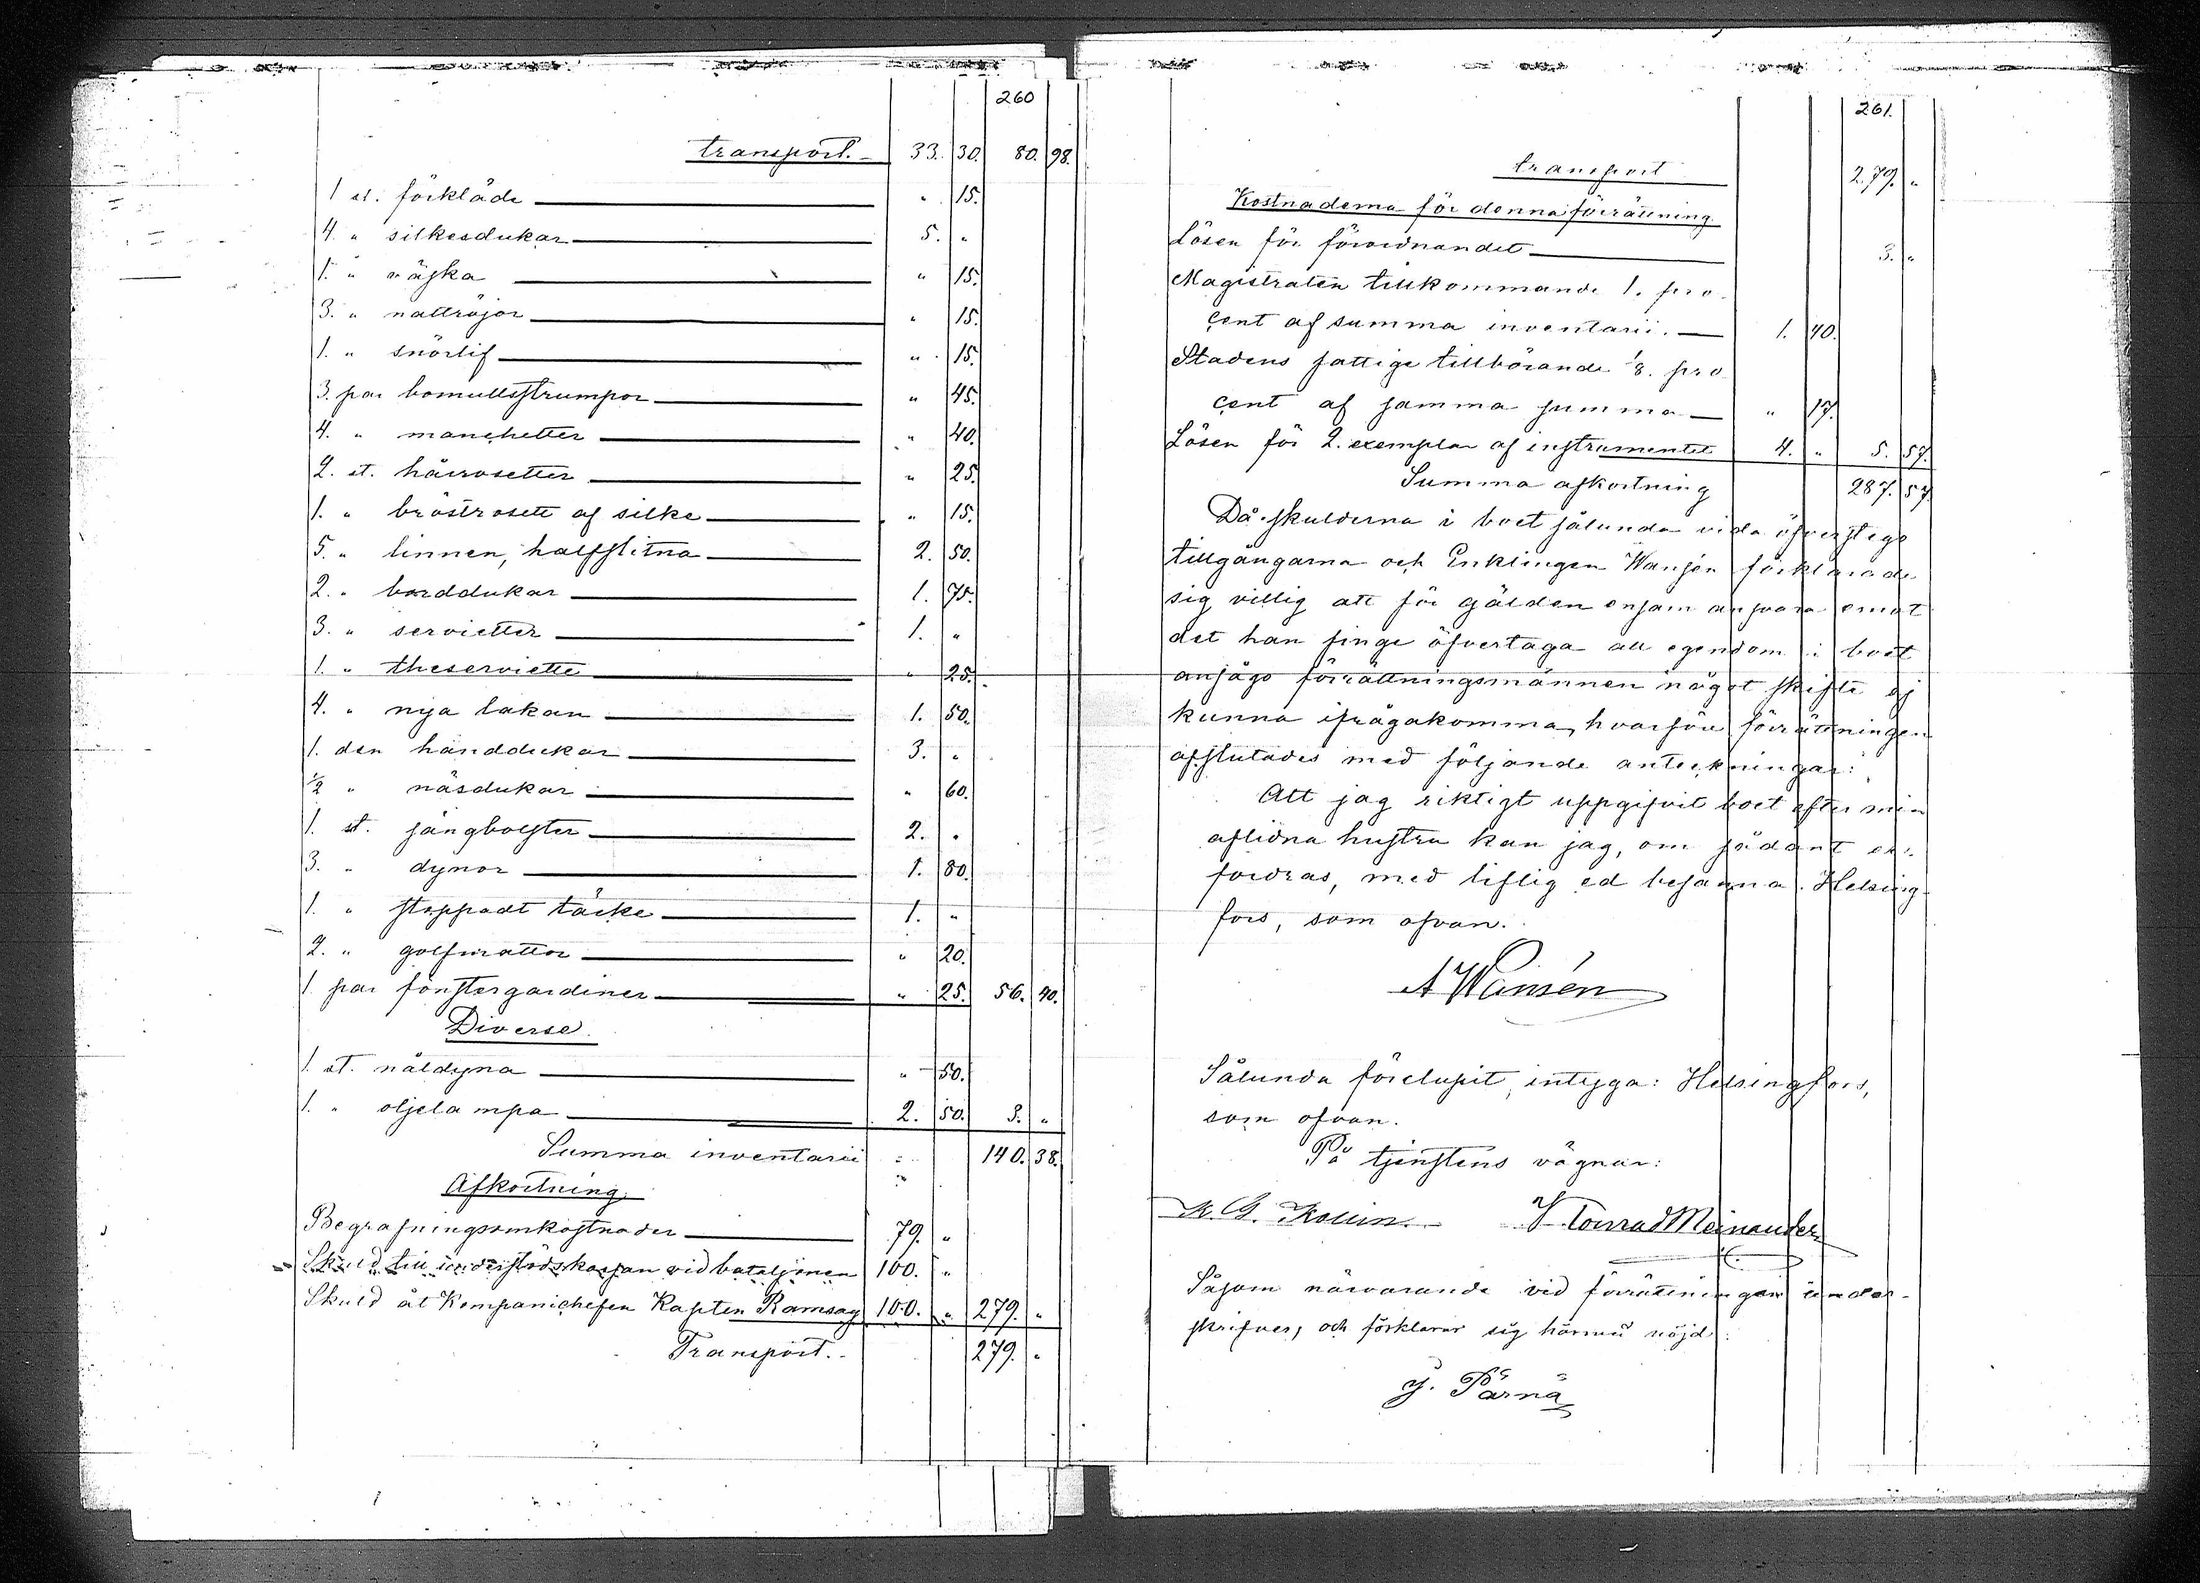 260
transport. 33. 30. 80. 98.
1 st. förkläde " 15.
4. " silkesdukar 5. "
1. " väska " 15.
3. " nattröjor " 15.
1. " snörlif " 15.
3. par bomullsstrumpor " 45.
4. " manchetter " 40.
2. st. hårrosetter " 25.
1. " bröstrosett af silke " 15.
5. " linnen, halfslitna 2. 50.
2. " borddukar 1. 75.
3. " servietter 1. "
1. " theserviette " 25.
4. " nya lakan 1. 50.
1. dzn handdukar 3. "
1/2 " näsdukar " 60.
1. st. sängbolster 2. "
3. " dynor 1. 80.
1. " stoppadt täcke 1. "
2. " golfmattor " 20.
1 par fönstergardiner " 25. 56. 40.
Diverse
1. st. nåldyna " 50.
1. " oljelampa 2. 50. 3. "
Summa inventarii 140. 38.
Afkortning
Begrafningsomkostnader 79. "
Skuld till understödskassan vid bataljonen 100. "
Skuld åt Kompanichefen Kapten Ramsay 100. " 279. "
Transport. 279. "
261.
transport 279. "
Kostnaderna för denna förrättning
Lösen för förordnandet 3. "
Magistraten tillkommande 1. pro
cent af summa inventarii. 1. 40.
Stadens fattige tillhörande 1/8. pro
cent af samma summa " 17.
Lösen för 2. exemplar af instrumentet 4. " 5. 57.
Summa afkortning 287. 57.
Då skulderna i boet sålunda vida öfverstego
tillgångarna och Enklingen Wansén förklarade
sig villig att för gälden ensam ansvara emot
det han finge öfvertaga all egendom i boet
ansågo förrättningsmännen något skifte ej
kunna ifrågakomma, hvarföre förrättningen
afslutades med följande anteckningar:
Att jag riktigt uppgifvit boet efter min
aflidna hustru kan jag, om sådant er-
fordras, med liflig ed besanna. Helsing-
fors, som ofvan.
A Wansén
Sålunda förelupit, intyga: Helsingfors,
som ofvan.
På tjenstens vägnar:
K. G. Konrad Meinander
Såsom närvarande vid förrättningen under-
skrifver, och förklarar sig härmed nöjd:
J. Pärnä